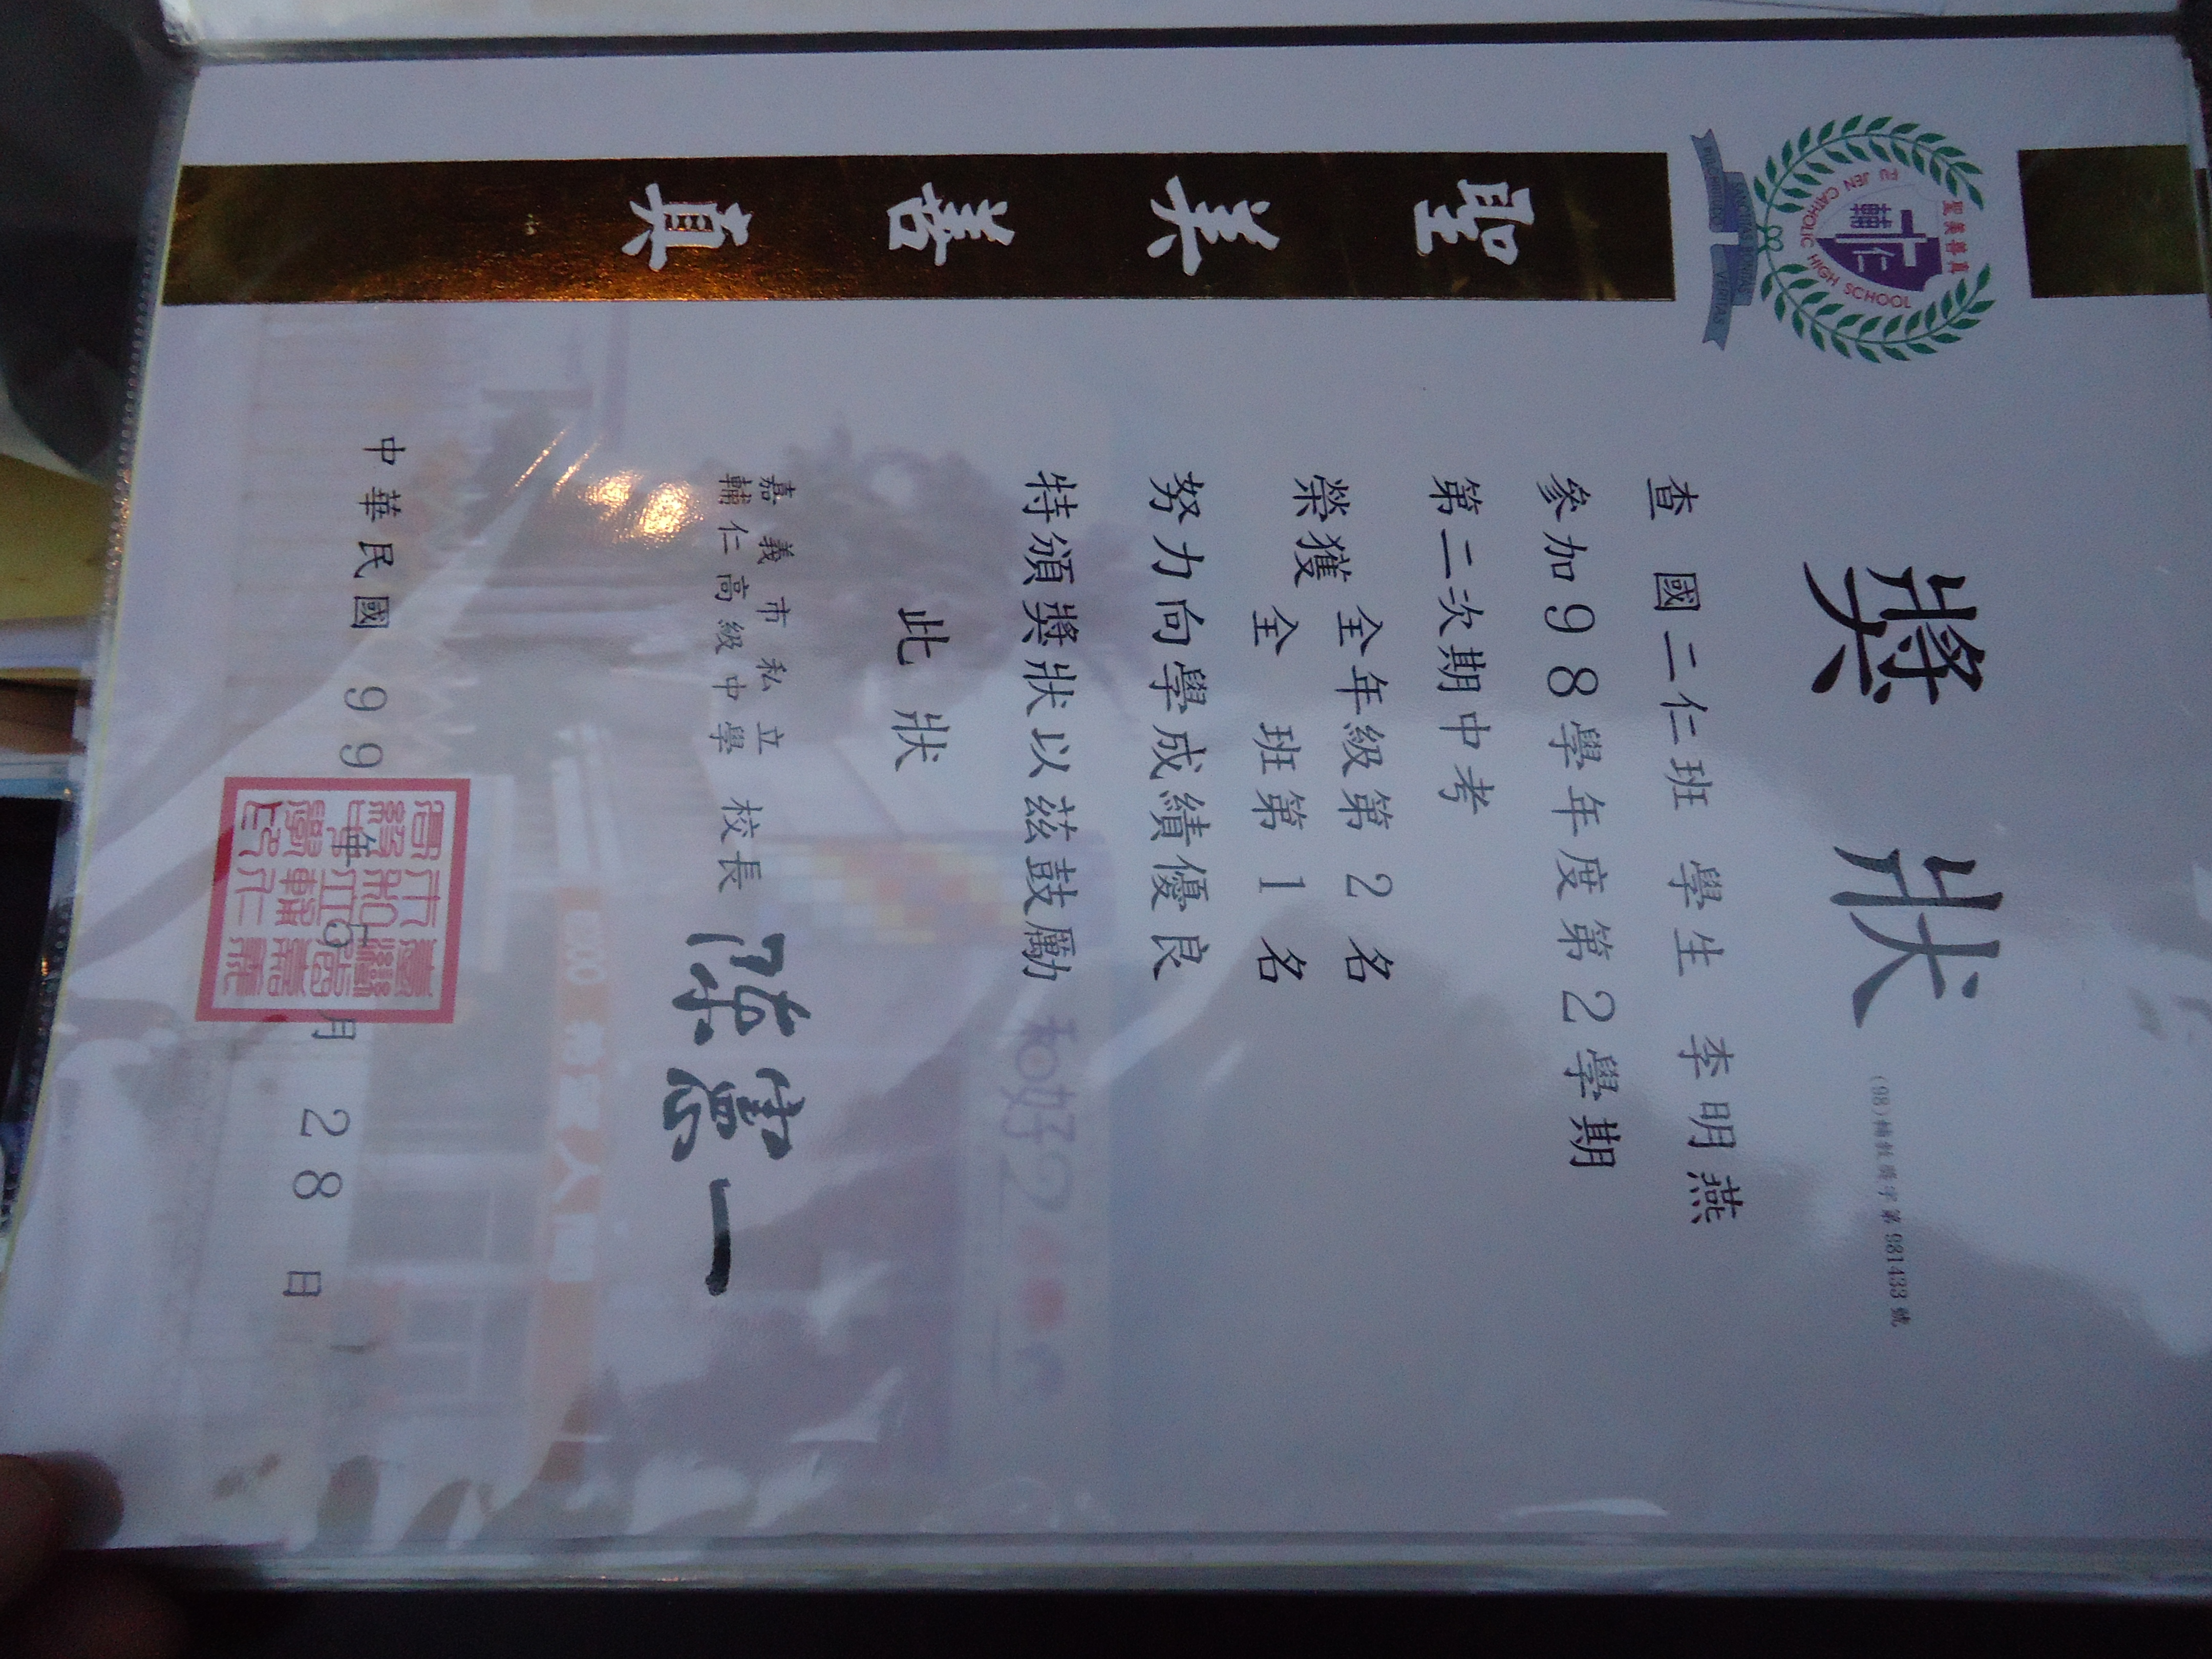 聖美善真
輔仁
FU JEN CATHOLIC HIGH SCHOOL
VERITAS
聖
美
善
真
獎狀
第981433號
查 國二仁班 學生 李明燕
參加98學年度第2學期
第二次期中考
榮獲
全年級第 2 名
全 班第 1 名
努力向學成績優良
特頒獎狀以茲鼓勵
此狀
嘉義市私立
輔仁高級中學 校長 陳憲一
中華民國 99 年 月 28 日
和好